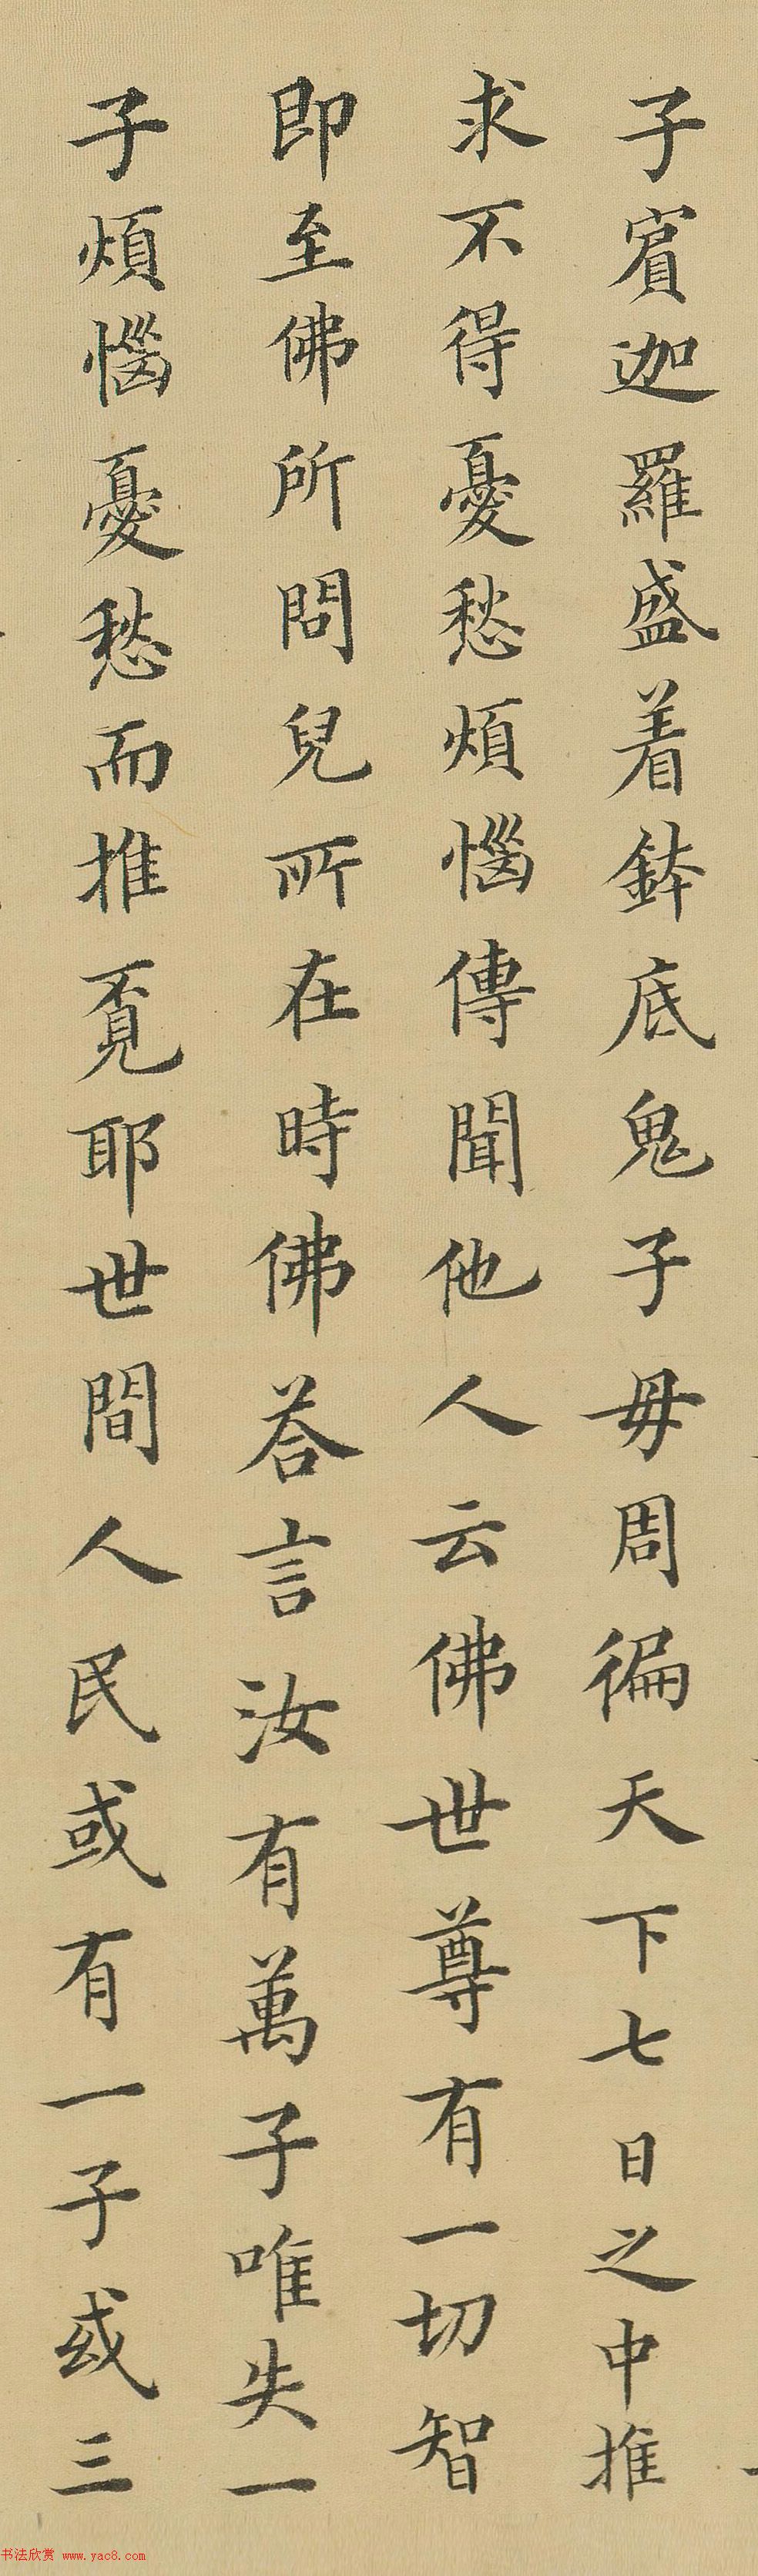 子賓迦羅盛着鉢底鬼子母周徧天下七日之中推
求不得憂愁煩惱傳聞他人云佛世尊有一切智
即至佛所問兒所在時佛荅言汝有萬子唯失一
子煩惱憂愁而推覔耶世間人民或有一子或三
书法欣赏 www.yac8.com